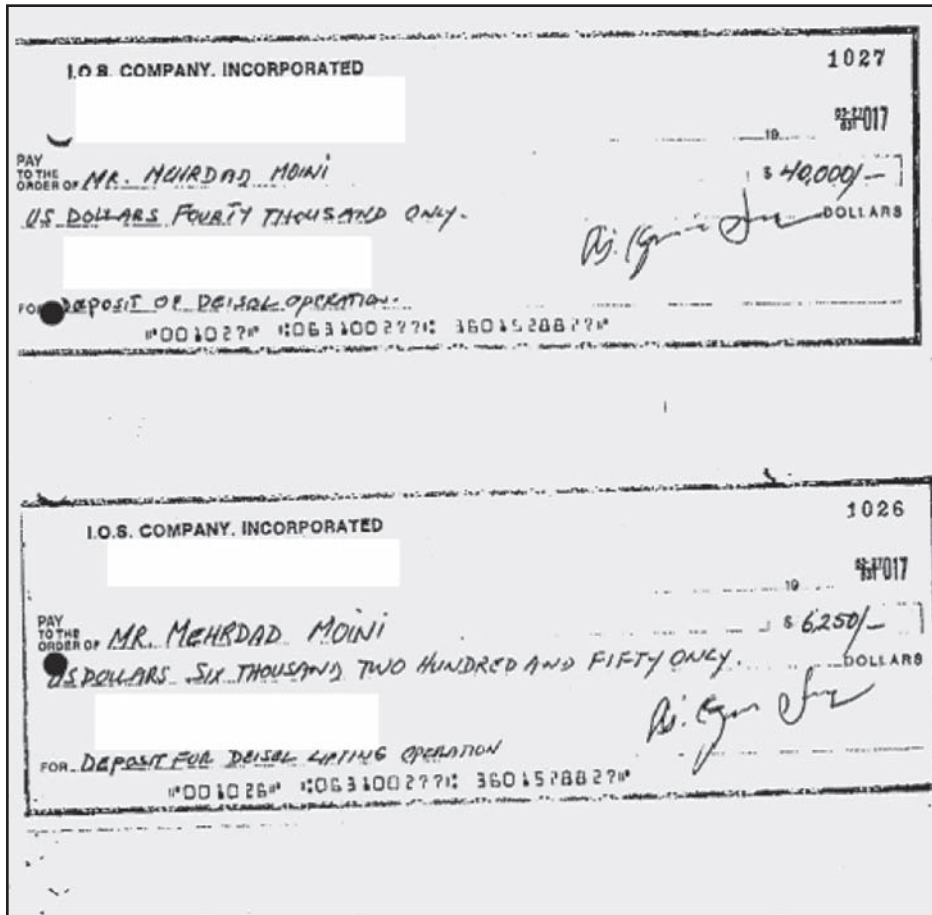 I.O.S. COMPANY, INCORPORATED
1027
19
017
PAY
TO THE
ORDER OF MR. MEHRDAD MOINI
$ 40,000/—
US DOLLARS FOURTY THOUSAND ONLY.
DOLLARS
FOR DEPOSIT OF DEISEL OPERATION.
⑈001027⑈ ⑆063100277⑆ 3601528827⑈
I.O.S. COMPANY, INCORPORATED
1026
19
017
PAY
TO THE
ORDER OF MR. MEHRDAD MOINI
$ 6,250/—
US DOLLARS SIX THOUSAND TWO HUNDRED AND FIFTY ONLY.
DOLLARS
FOR DEPOSIT FOR DEISEL LIFTING OPERATION
⑈001026⑈ ⑆063100277⑆ 3601528827⑈